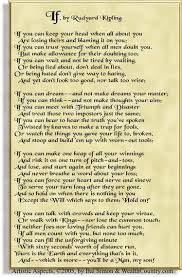 If, by Rudyard Kipling
If you can keep your head when all about you
Are losing theirs and blaming it on you;
If you can trust yourself when all men doubt you,
But make allowance for their doubting too:
If you can wait and not be tired by waiting,
Or, being lied about, don't deal in lies,
Or being hated don't give way to hating,
And yet don't look too good, nor talk too wise;
If you can dream—and not make dreams your master;
If you can think—and not make thoughts your aim,
If you can meet with Triumph and Disaster
And treat those two impostors just the same;
If you can bear to hear the truth you've spoken
Twisted by knaves to make a trap for fools,
Or watch the things you gave your life to, broken,
And stoop and build'em up with worn-out tools;
If you can make one heap of all your winnings
And risk it on one turn of pitch-and-toss,
And lose, and start again at your beginnings,
And never breathe a word about your loss:
If you can force your heart and nerve and sinew
To serve your turn long after they are gone,
And so hold on when there is nothing in you
Except the Will which says to them: 'Hold on!'
If you can talk with crowds and keep your virtue,
Or walk with Kings—nor lose the common touch;
If neither foes nor loving friends can hurt you,
If all men count with you, but none too much;
If you can fill the unforgiving minute
With sixty seconds' worth of distance run,
Yours is the Earth and everything that's in it,
And—which is more—you'll be a Man, my son!
Artistic Aspects, ©2003, by Bill & WealthCountry.com